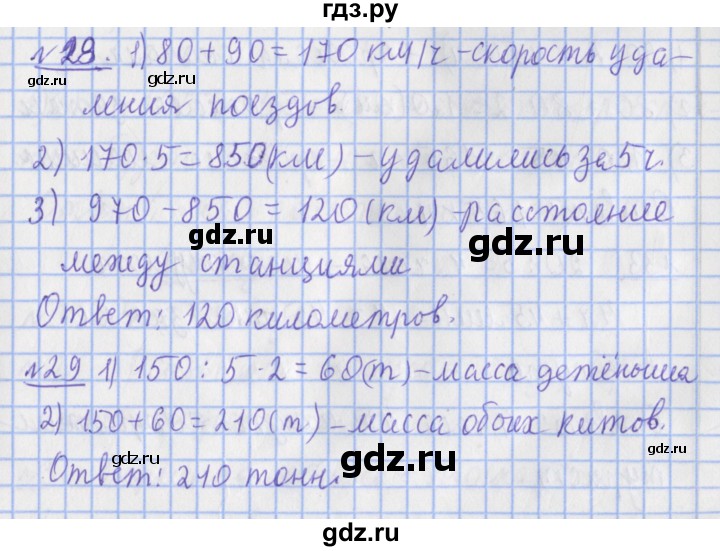 гдз.ру
№28. 1) 80+90=170 км/ч -скорость уда-
gdz.ru gdz.ru
ления поездов.
2) 170·5=850(км) -удалились за 5ч.
gdz.ru
3) 970-850=120(км) -расстояние
gdz.ru
между станциями
Ответ: 120 километров.
№29 1) 150:5·2=60(т)-масса детёныша
gdz.ru gdz.ru
2) 150+60=210(т) -масса обоих китов.
gdz.ru gdz.ru
Ответ: 210 тонн.
gdz.ru